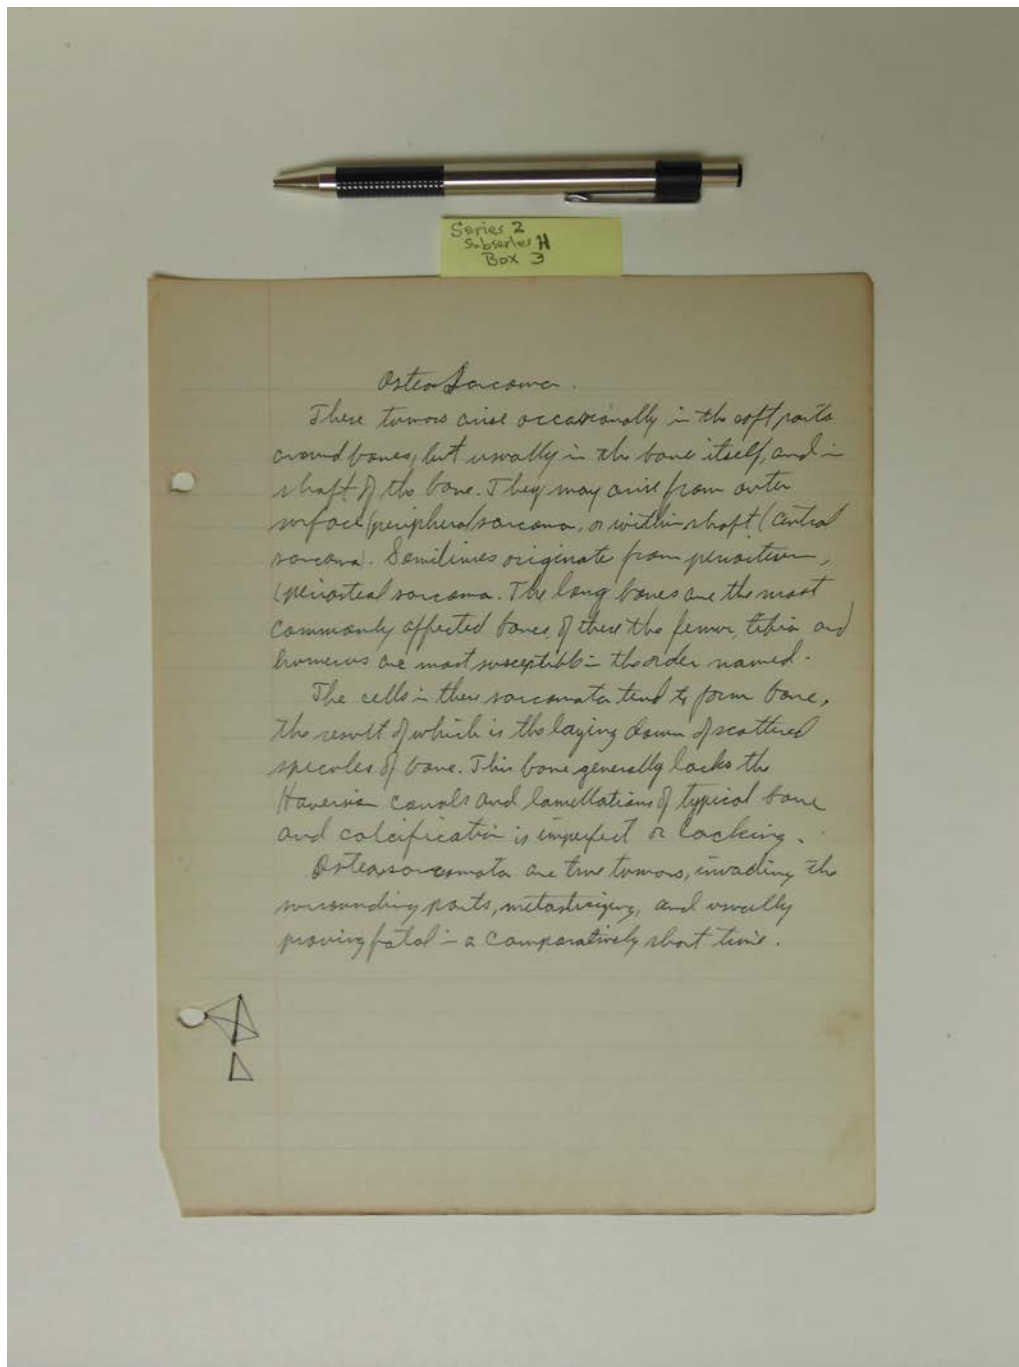 Series 2
Subseries H
Box 3
Osteosarcoma.
These tumors arise occasionally in the soft parts
around bones, but usually in the bone itself, and in
shaft of the bone. They may arise from outer
surface (peripheral sarcoma, or within shaft (central
sarcoma). Somitimes originate from periosteum,
(periosteal sarcoma. The long bones are the most
commonly affected bones, of these the femur, tibia and
humerus are most susceptible in the order named.
The cells in these sarcomata tend to form bone,
the result of which is the laying down of scattered
spicules of bone. This bone generally lacks the
Haversian canals and lamellations of typical bone
and calcification is imperfect or lacking.
Osteosarcomata are true tumors, invading the
surrounding parts, metastisizing, and usually
proving fatal in a comparatively short time.